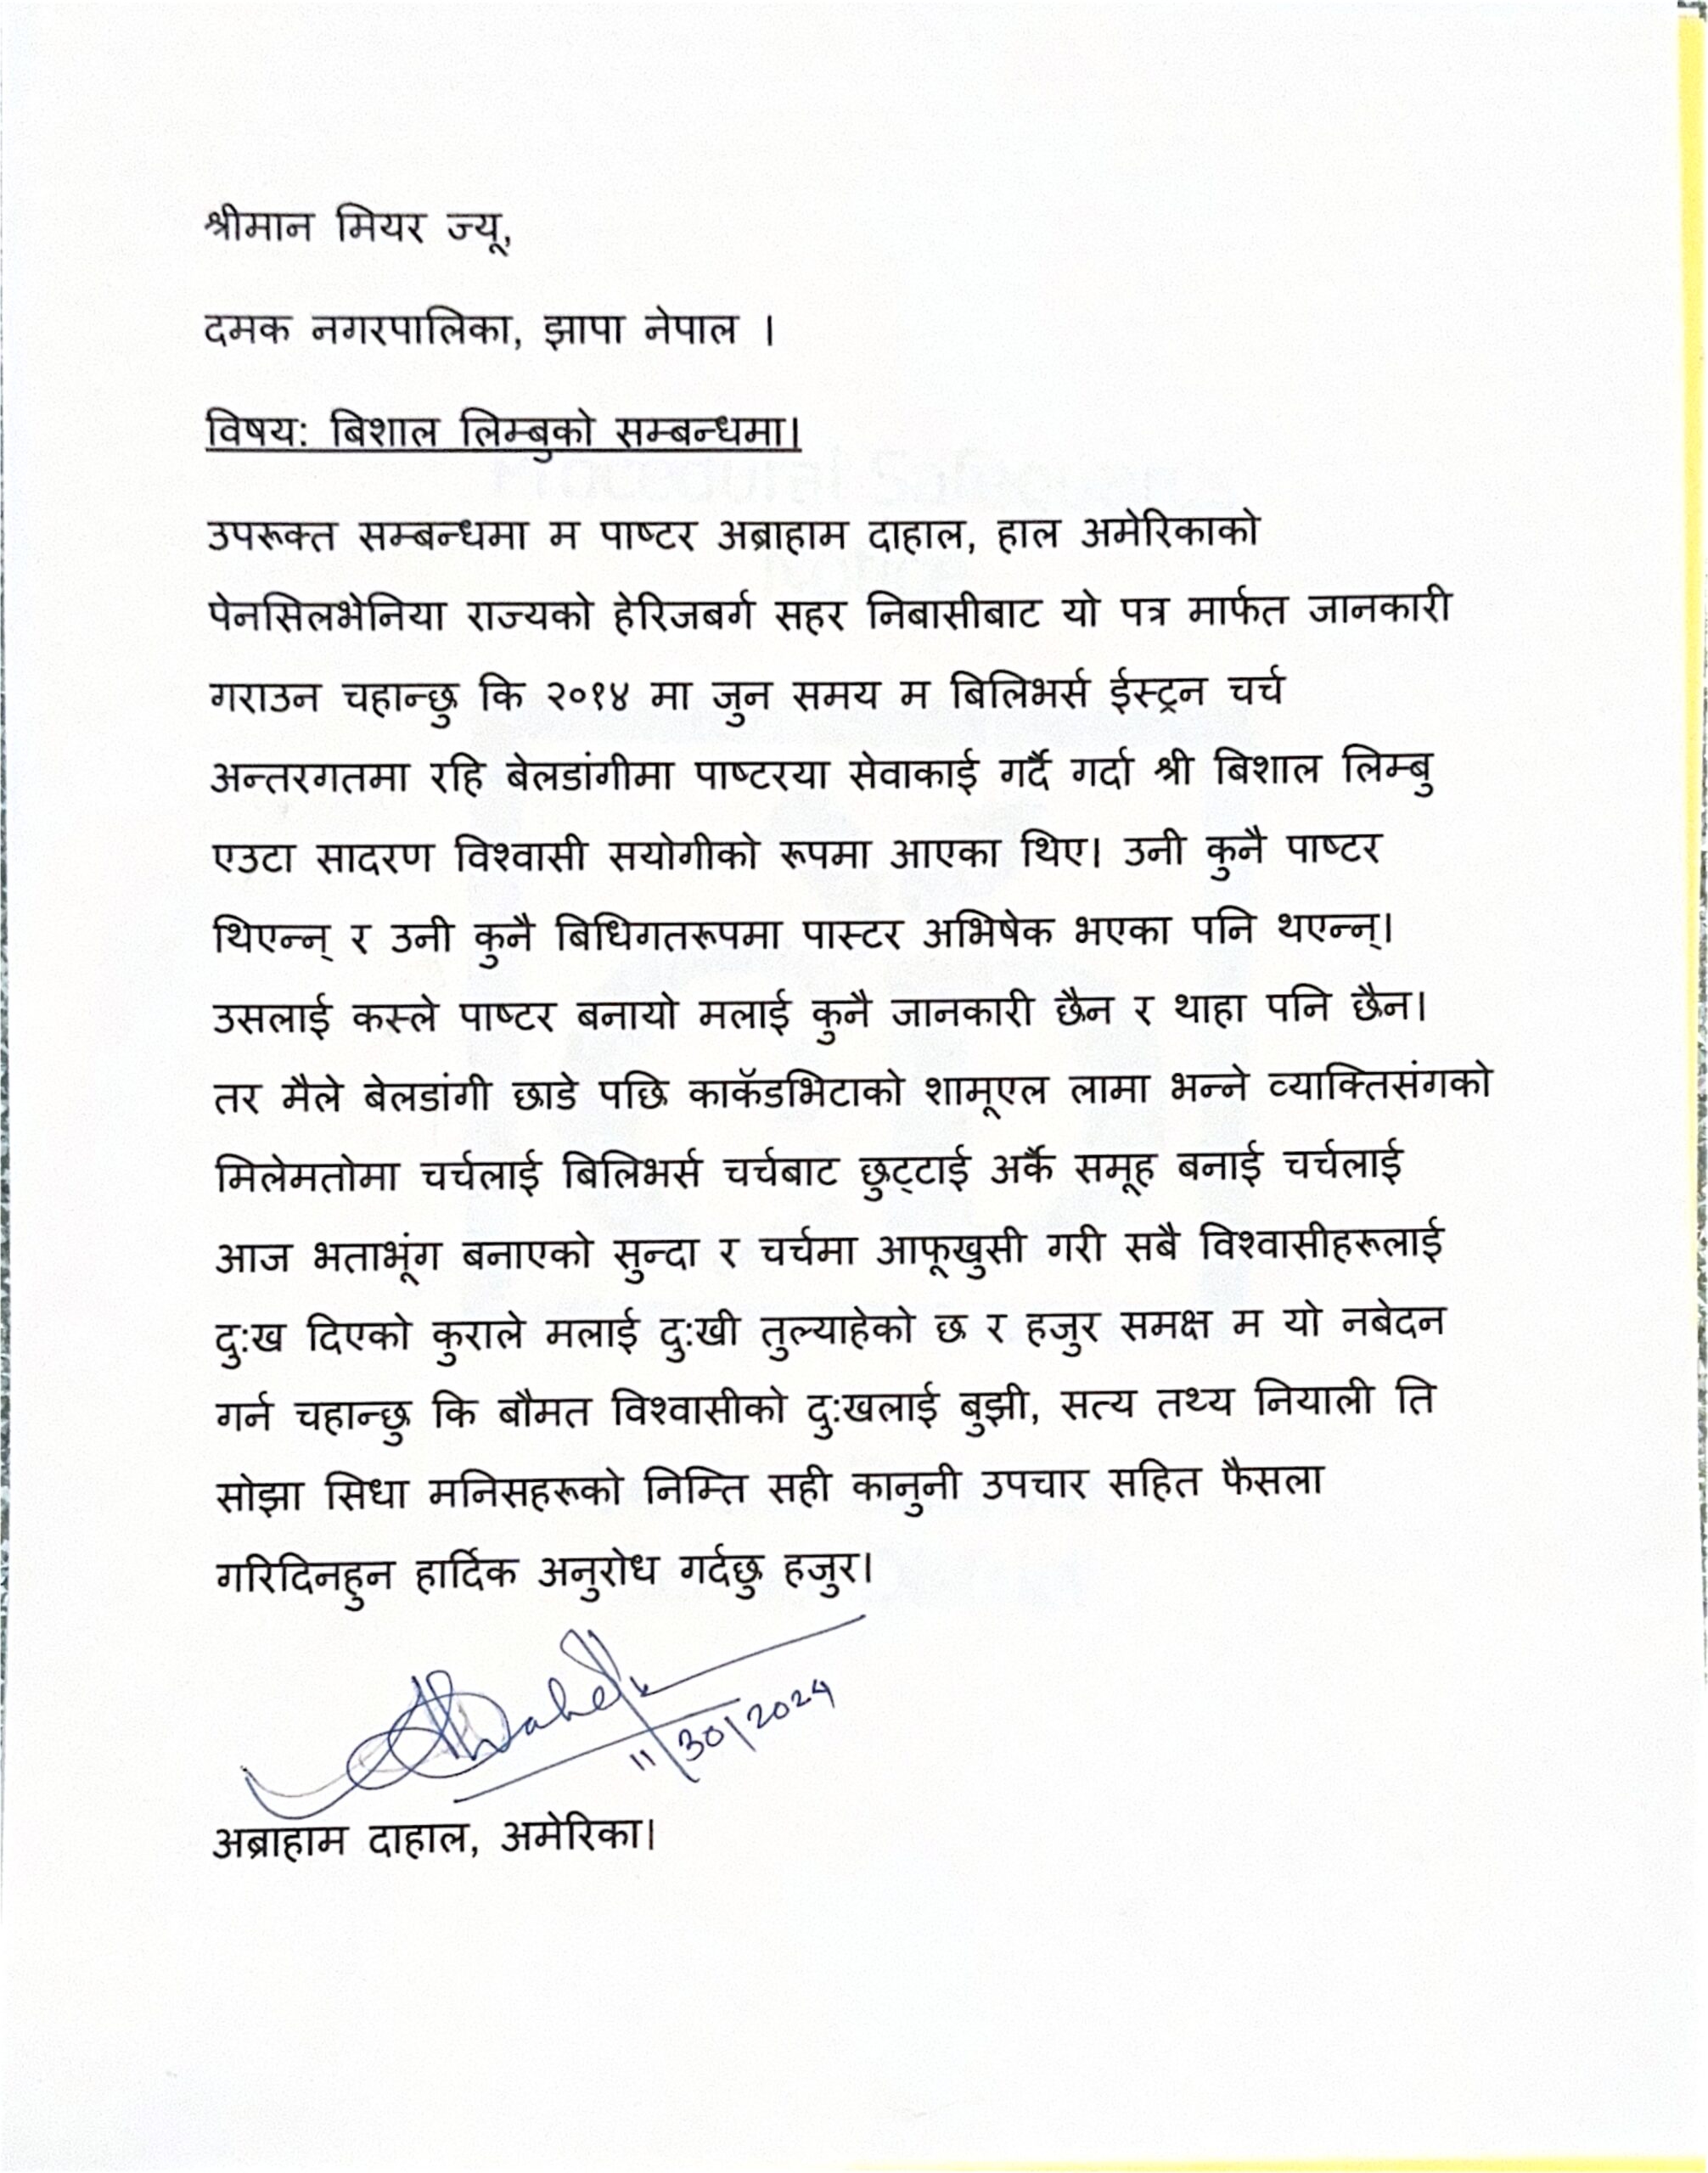 श्रीमान मियर ज्यू,
दमक नगरपालिका, झापा नेपाल ।
विषय: बिशाल लिम्बुको सम्बन्धमा।
उपरूक्त सम्बन्धमा म पाष्टर अब्राहाम दाहाल, हाल अमेरिकाको
पेनसिलभेनिया राज्यको हेरिजबर्ग सहर निबासीबाट यो पत्र मार्फत जानकारी
गराउन चहान्छु कि २०१४ मा जुन समय म बिलिभर्स ईस्ट्रन चर्च
अन्तरगतमा रहि बेलडांगीमा पाष्टरया सेवाकाई गर्दै गर्दा श्री बिशाल लिम्बु
एउटा सादरण विश्वासी सयोगीको रूपमा आएका थिए। उनी कुनै पाष्टर
थिएन्न् र उनी कुनै बिधिगतरूपमा पास्टर अभिषेक भएका पनि थएन्न्।
उसलाई कस्ले पाष्टर बनायो मलाई कुनै जानकारी छैन र थाहा पनि छैन।
तर मैले बेलडांगी छाडे पछि काकॅडभिटाको शामूएल लामा भन्ने व्याक्तिसंगको
मिलेमतोमा चर्चलाई बिलिभर्स चर्चबाट छुट्टाई अर्कै समूह बनाई चर्चलाई
आज भताभूंग बनाएको सुन्दा र चर्चमा आफूखुसी गरी सबै विश्वासीहरूलाई
दु:ख दिएको कुराले मलाई दु:खी तुल्याहेको छ र हजुर समक्ष म यो नबेदन
गर्न चहान्छु कि बौमत विश्वासीको दु:खलाई बुझी, सत्य तथ्य नियाली ति
सोझा सिधा मनिसहरूको निम्ति सही कानुनी उपचार सहित फैसला
गरिदिनहुन हार्दिक अनुरोध गर्दछु हजुर।
ADahal
11/30/2024
अब्राहाम दाहाल, अमेरिका।